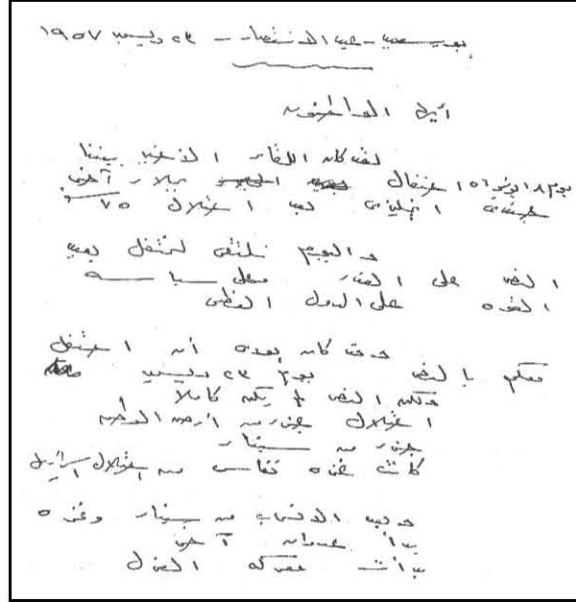 بورسعيد - عيد الانتصار - ٢٣ ديسمبر ١٩٥٧
أيها المواطنون
لقد كان اللقاء الأخير بيننا
يوم ١٨ يونيو ٥٦ احتفال بجلاء آخر
جندى انجليزى بعد احتلال ٧٥
واليوم نلتقى لنحتفل بعيد
النصر على الغدر
على الدول العظمى
وقت كان بوده أن احتفل
معكم بالنصر يوم ٢٣ ديسمبر
ولكن النصر لم يكن كاملا
احتلال جزء من أرض الوطن
جزء من سيناء
كانت غزه تقاسى من احتلال اسرائيل
وبعد الانسحاب من سيناء وغزه
بدأ عدوان آخر
بدأت معركه العزل